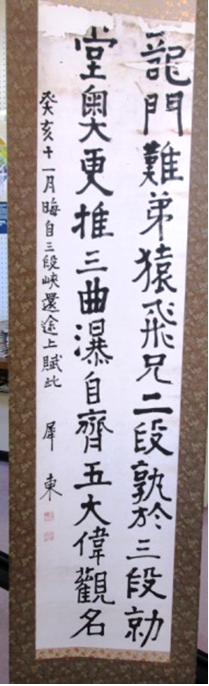 龍門難弟猿飛兄二段孰於三段勍
堂奧更推三曲瀑自齊五大偉觀名
癸亥十一月晦自三段峽還途上賦此 犀東